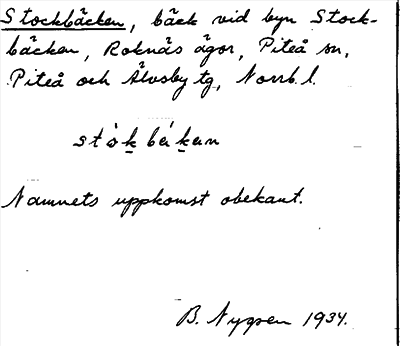 Stockbäcken, bäck vid byn Stock-
bäcken, Roknäs ägor, Piteå sn,
Piteå och Älvsby tg, Norrb. l.
stòkbákan
Namnets uppkomst obekant.
B. Nygren 1934.